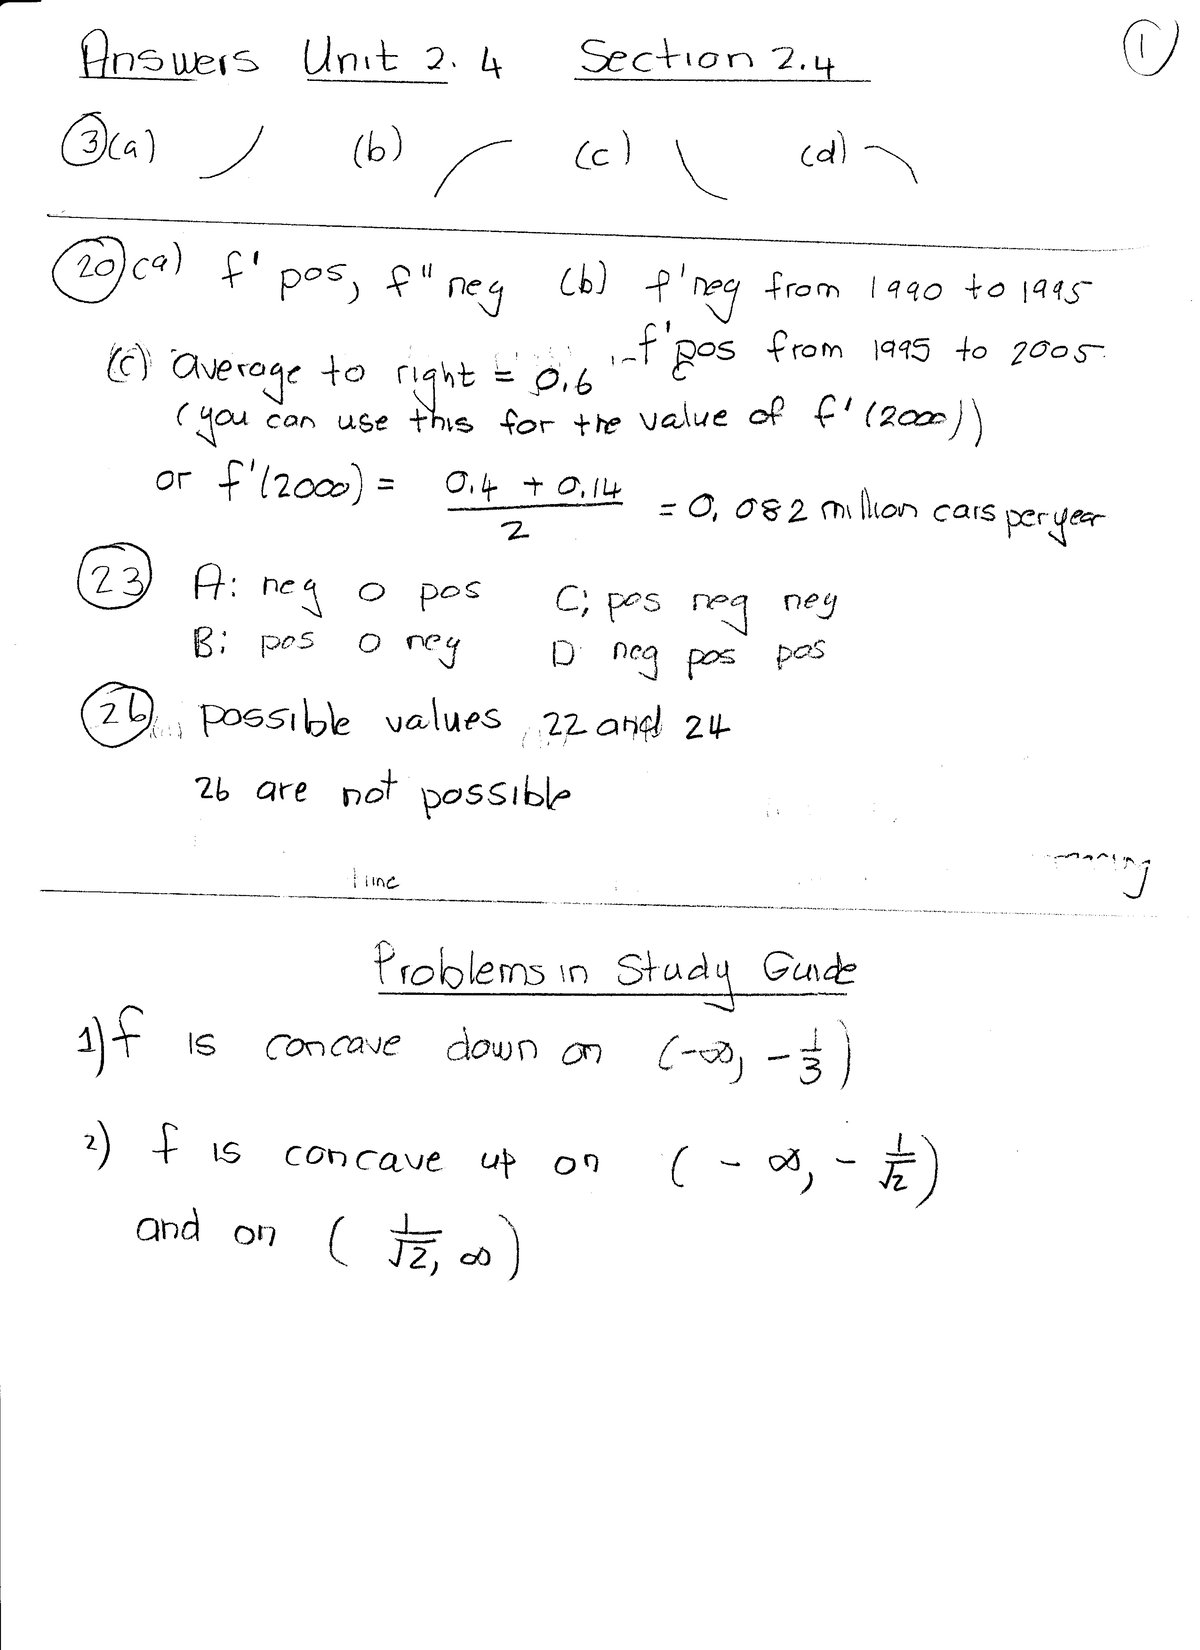 Answers Unit 2.4 Section 2.4 1
3(a) (b) (c) (d)
20(a) f' pos, f" neg (b) f' neg from 1990 to 1995
f' pos from 1995 to 2005.
(c) average to right = 0.6
(you can use this for the value of f'(2000))
or f'(2000) = (0.4 + 0.14)/2 = 0,082 million cars per year
23 A: neg 0 pos C; pos neg neg
B: pos 0 neg D neg pos pos
26 possible values 22 and 24
26 are not possible
Problems in Study Guide
1) f is concave down on (-∞, -1/3)
2) f is concave up on (-∞, -1/√2)
and on (1/√2, ∞)